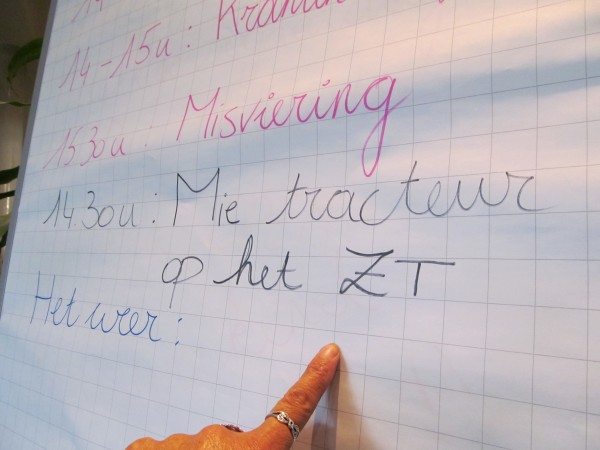 14
14-15u:
1530u: Misviering
14.30u: Mie tracteur
op het ZT
Het weer: